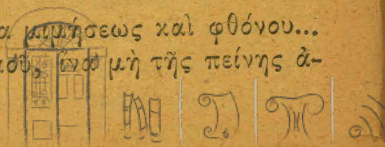 α μιμήσεως καὶ φθόνου...
ἵνα μὴ τῆς πείνης ἀ-